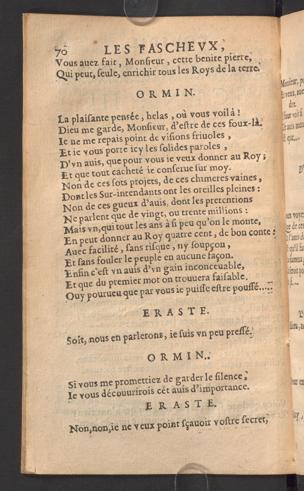 70 LES FASCHEVX,
Vous auez fait, Monsieur, cette benite pierre,
Qui peut, seule, enrichir tous les Roys de la terre.
ORMIN.
La plaisante pensée, helas, où vous voilà!
Dieu me garde, Monsieur, d'estre de ces foux-là.
Ie ne me repais point de visions friuoles,
Et ie vous porte icy les solides paroles,
D'vn auis, que pour vous ie veux donner au Roy;
Et que tout cacheté ie conserue sur moy.
Non de ces sots projets, de ces chimeres vaines,
Dont les Sur-intendants ont les oreilles pleines:
Non de ces gueux d'auis, dont les pretentions
Ne parlent que de vingt, ou trente millions:
Mais vn, qui tout les ans à si peu qu'on le monte,
En peut donner au Roy quatre cent, de bon conte:
Auec facilité, sans risque, ny soupçon,
Et sans fouler le peuple en aucune façon.
Enfin c'est vn auis d'vn gain inconceuable,
Et que du premier mot on trouuera faisable.
Ouy pourueu que par vous ie puisse estre poussé....
ERASTE.
Soit, nous en parlerons, ie suis vn peu pressé.
ORMIN.
Si vous me promettiez de garder le silence,
Ie vous découurirois cét auis d'importance.
ERASTE.
Non, non, ie ne veux point sçauoir vostre secret,